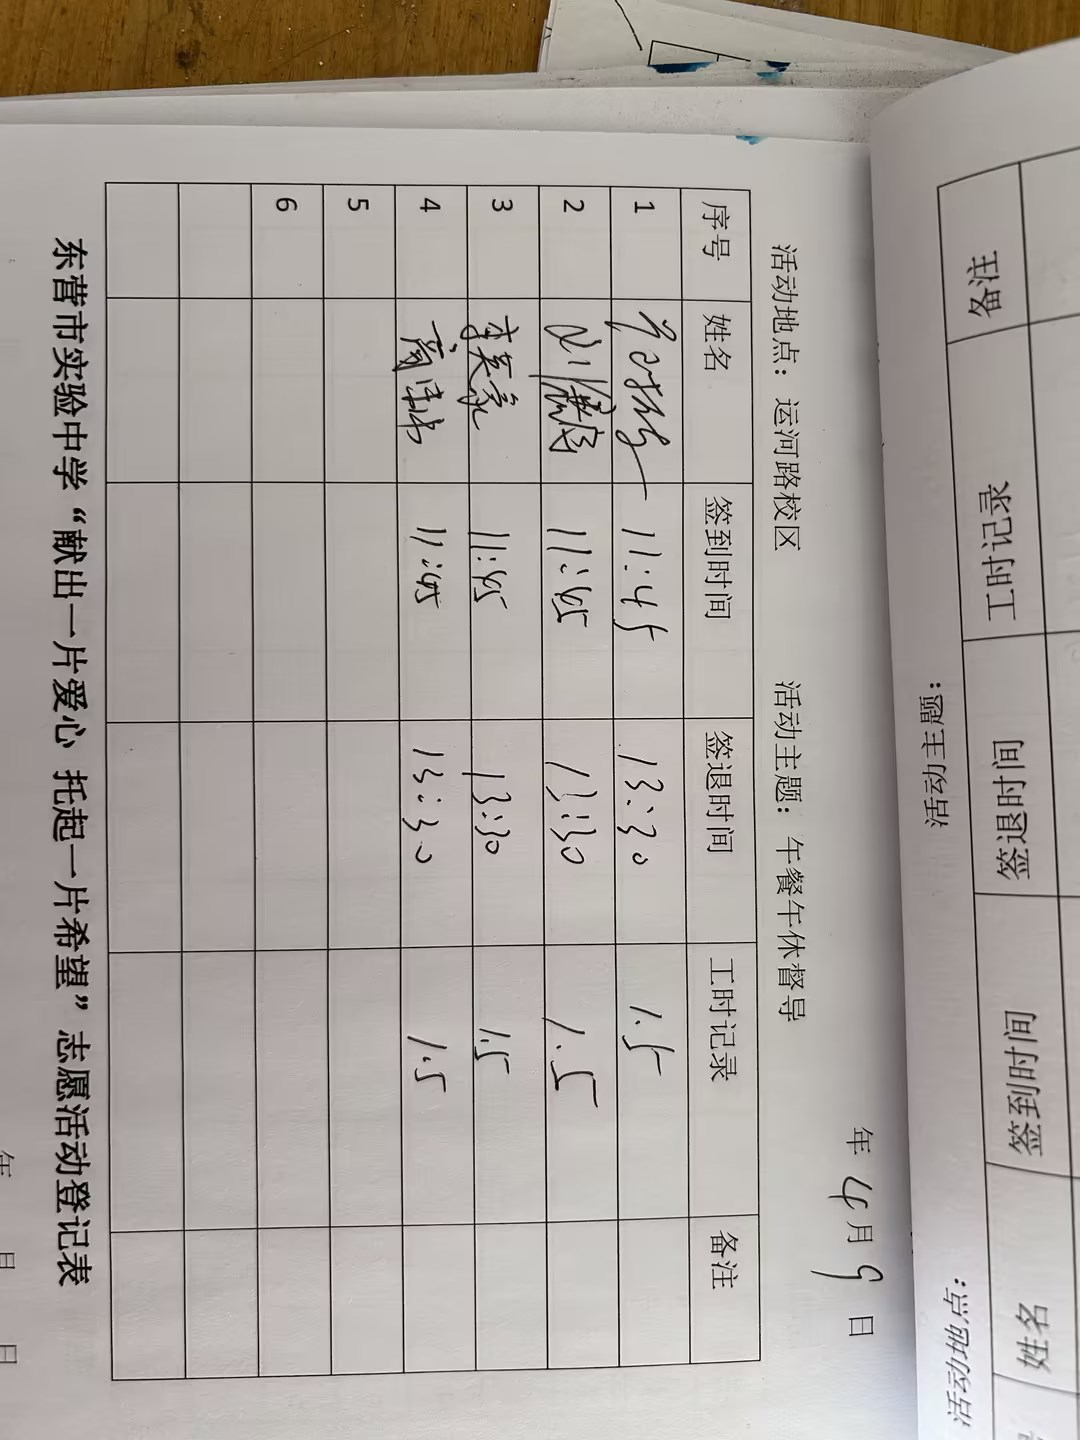 年 4月 9 日
活动地点：运河路校区 活动主题：午餐午休督导
序号 姓名 签到时间 签退时间 工时记录 备注
1 11:45 13:30 1.5
2 11:45 13:30 1.5
3 11:45 13:30 1.5
4 11:45 13:30 1.5
5
6
东营市实验中学“献出一片爱心 托起一片希望”志愿活动登记表
年 月 日
活动地点：
活动主题：
姓名 签到时间 签退时间 工时记录 备注